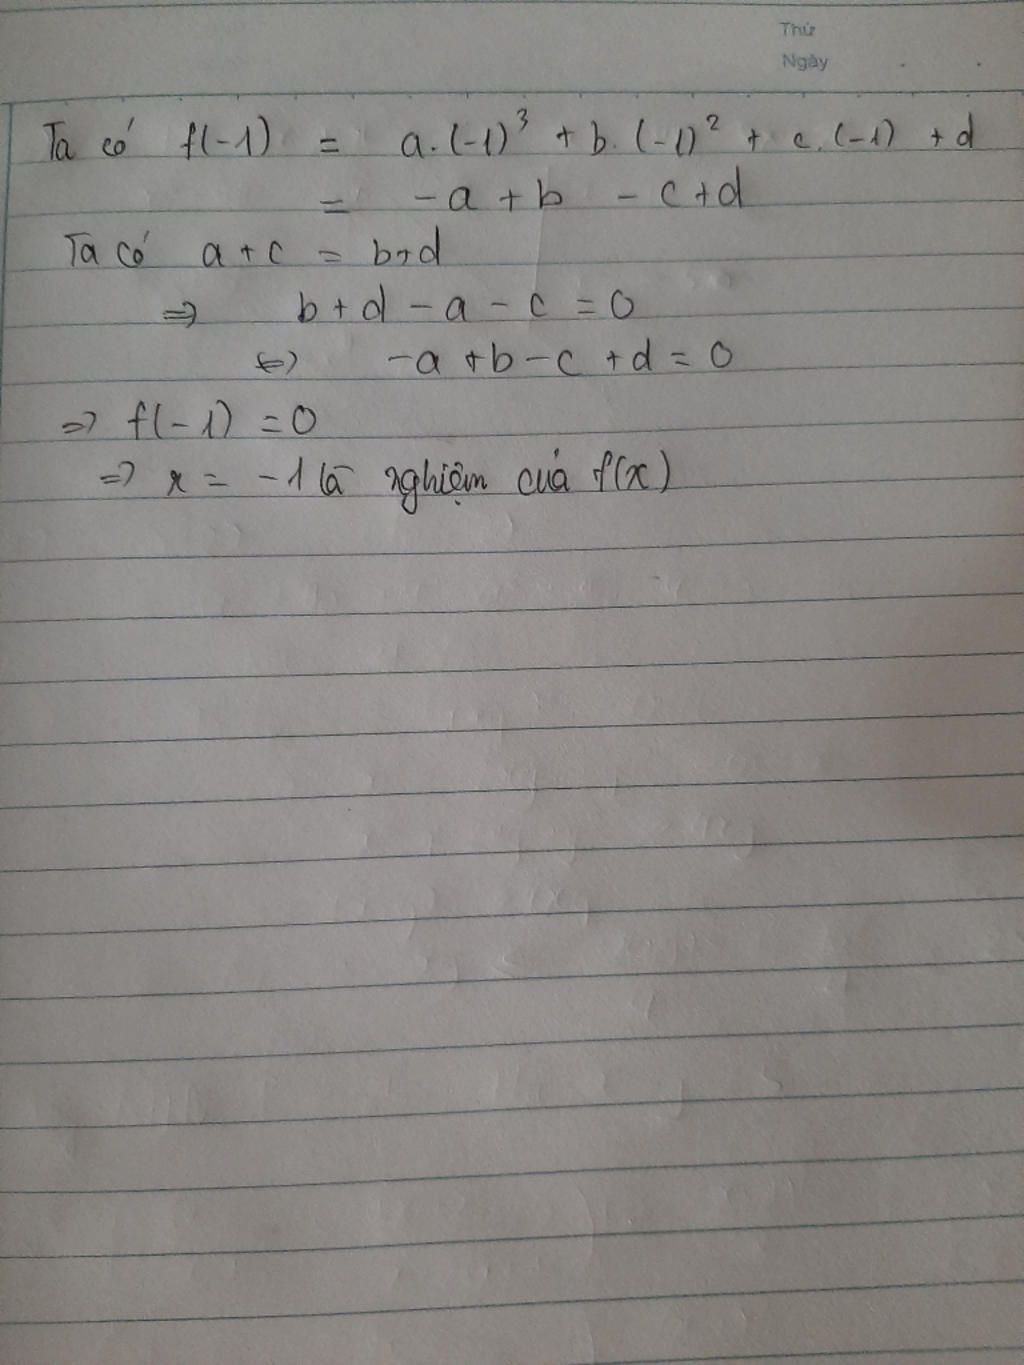 Thứ
Ngày
Ta có f(-1) = a.(-1)³ + b.(-1)² + c.(-1) + d
= -a + b - c + d
Ta có a + c = b + d
⇒ b + d - a - c = 0
⇔ -a + b - c + d = 0
⇒ f(-1) = 0
⇒ x = -1 là nghiệm của f(x)